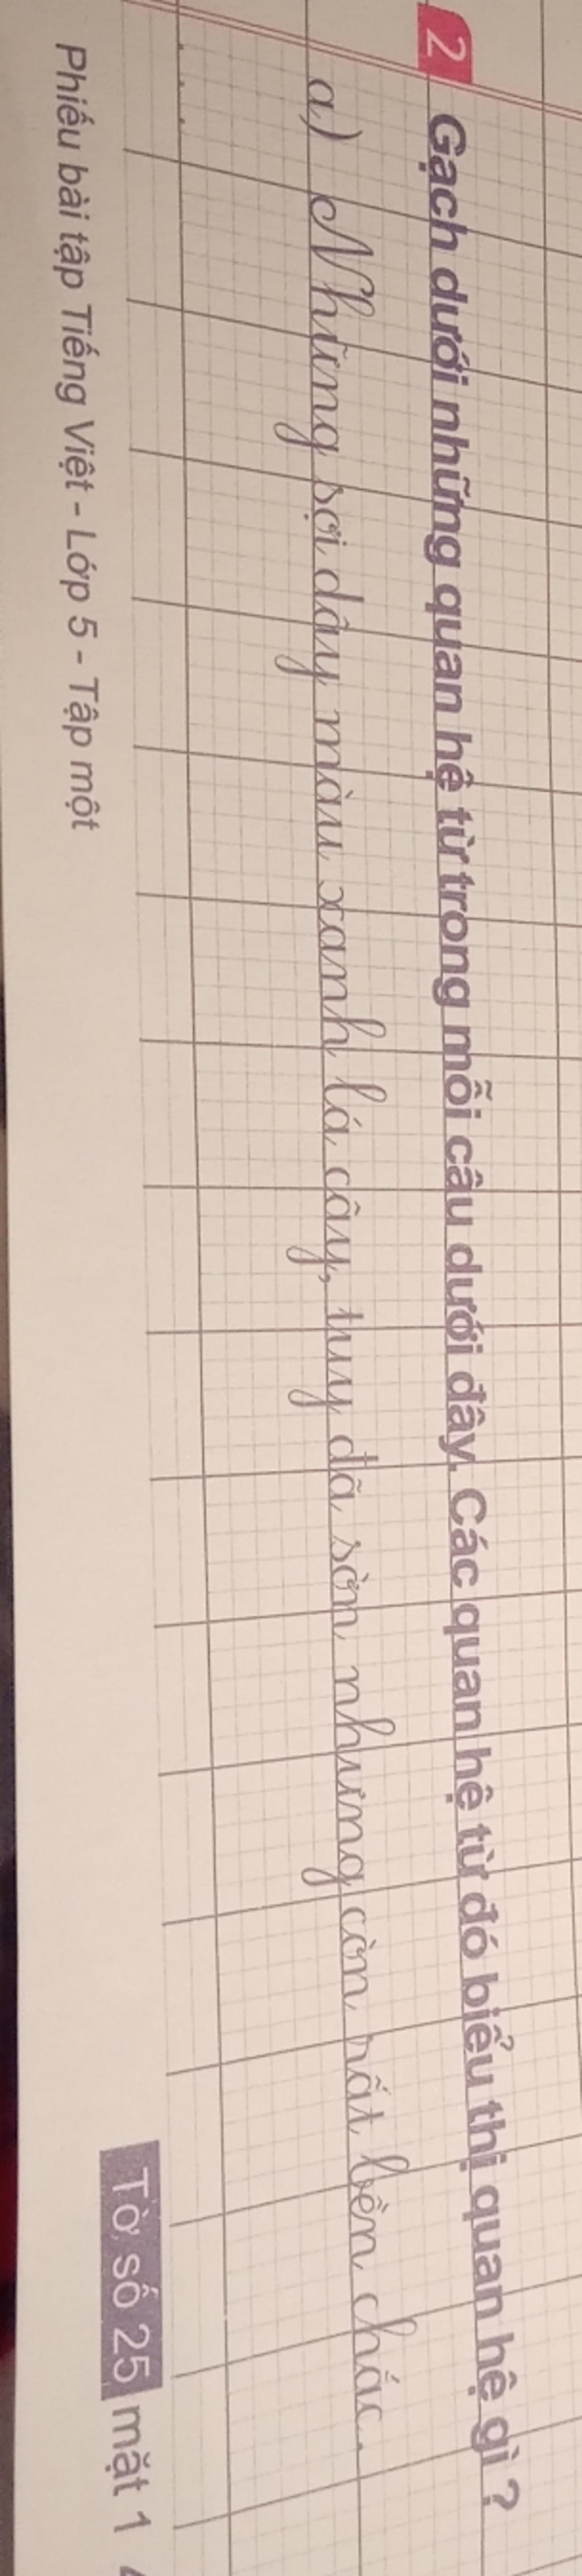 2 Gạch dưới những quan hệ từ trong mỗi câu dưới đây. Các quan hệ từ đó biểu thị quan hệ gì ?
a) Những sợi dây màu xanh lá cây, tuy đã sờn nhưng còn rất bền chắc.
...
Phiếu bài tập Tiếng Việt - Lớp 5 - Tập một
Tờ số 25 mặt 1